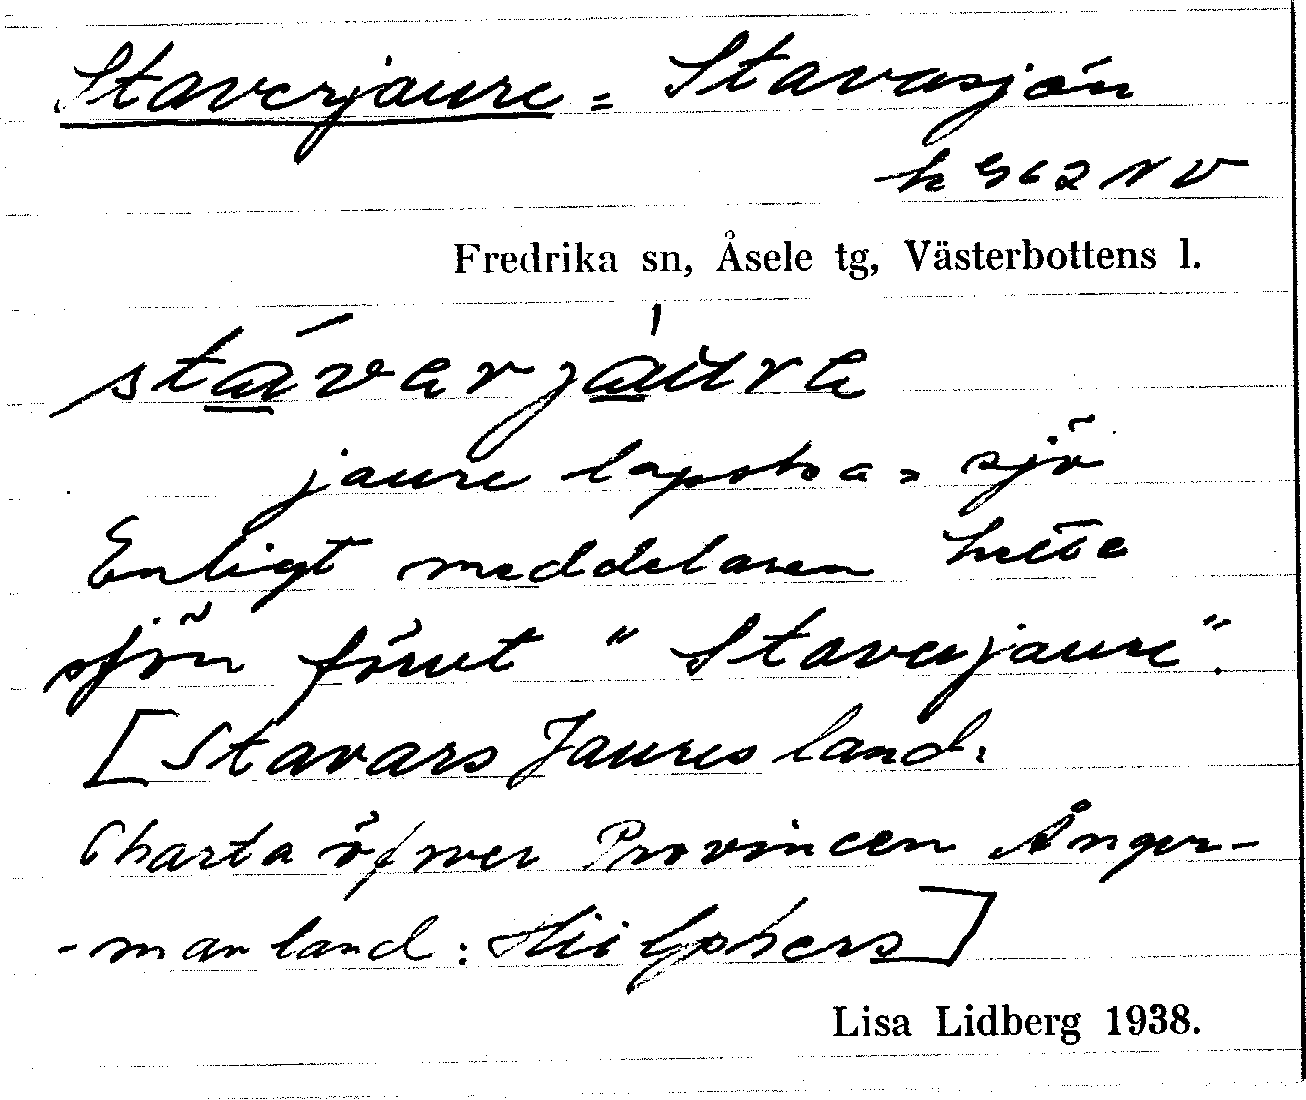 Staverjaure = Stavasjön
k 962 NV
Fredrika sn, Åsele tg, Västerbottens l.
stáverjàure
jaure lapska = sjö
Enligt meddelaren hette
sjön förut "Staverjaure".
[Stavars Jaures land:
Charta öfwer Provincen Ånger-
-manland: Hülphers]
Lisa Lidberg 1938.